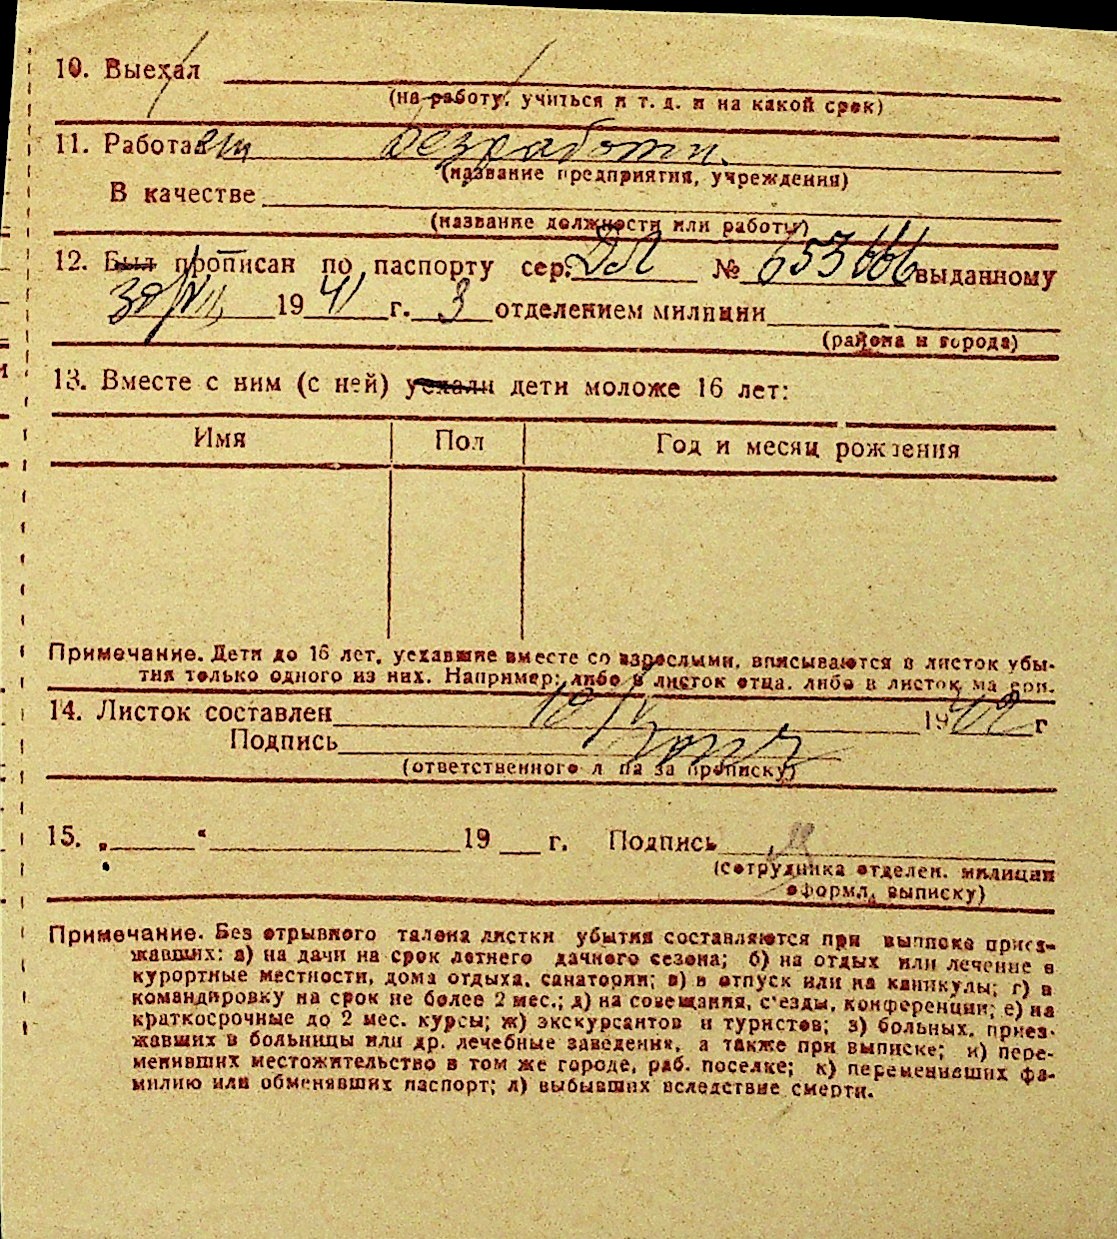 10. Выехал
(на работу, учиться и т. д. и на какой срок)
11. Работает безработн.
(название предприятия, учреждения)
В качестве
(название должности или работы)
12. Был прописан по паспорту сер. № 653666 выданному
30/VIII 1941 г. 3 отделением милиции
(района и города)
13. Вместе с ним (с ней) уехали дети моложе 16 лет:
Имя Пол Год и месяц рождения
Примечание. Дети до 16 лет, уехавшие вместе со взрослыми, вписываются в листок убы-
тия только одного из них. Например: либо в листок отца, либо в листок ма ери.
14. Листок составлен 1942 г
Подпись
(ответственного л ца за прописку)
15. „ “ 19 г. Подпись
(сотрудника отделен. милиции
оформл. выписку)
Примечание. Без отрывного талона листки убытия составляются при выписке приез-
жавших: а) на дачи на срок летнего дачного сезона; б) на отдых или лечение в
курортные местности, дома отдыха, санатории; в) в отпуск или на каникулы; г) в
командировку на срок не более 2 мес.; д) на совещания, с'езды, конференции; е) на
краткосрочные до 2 мес. курсы; ж) экскурсантов и туристов; з) больных, приез-
жавших в больницы или др. лечебные заведения, а также при выписке; и) пере-
менивших местожительство в том же городе, раб. поселке; к) переменивших фа-
милию или обменявших паспорт; л) выбывших вследствие смерти.